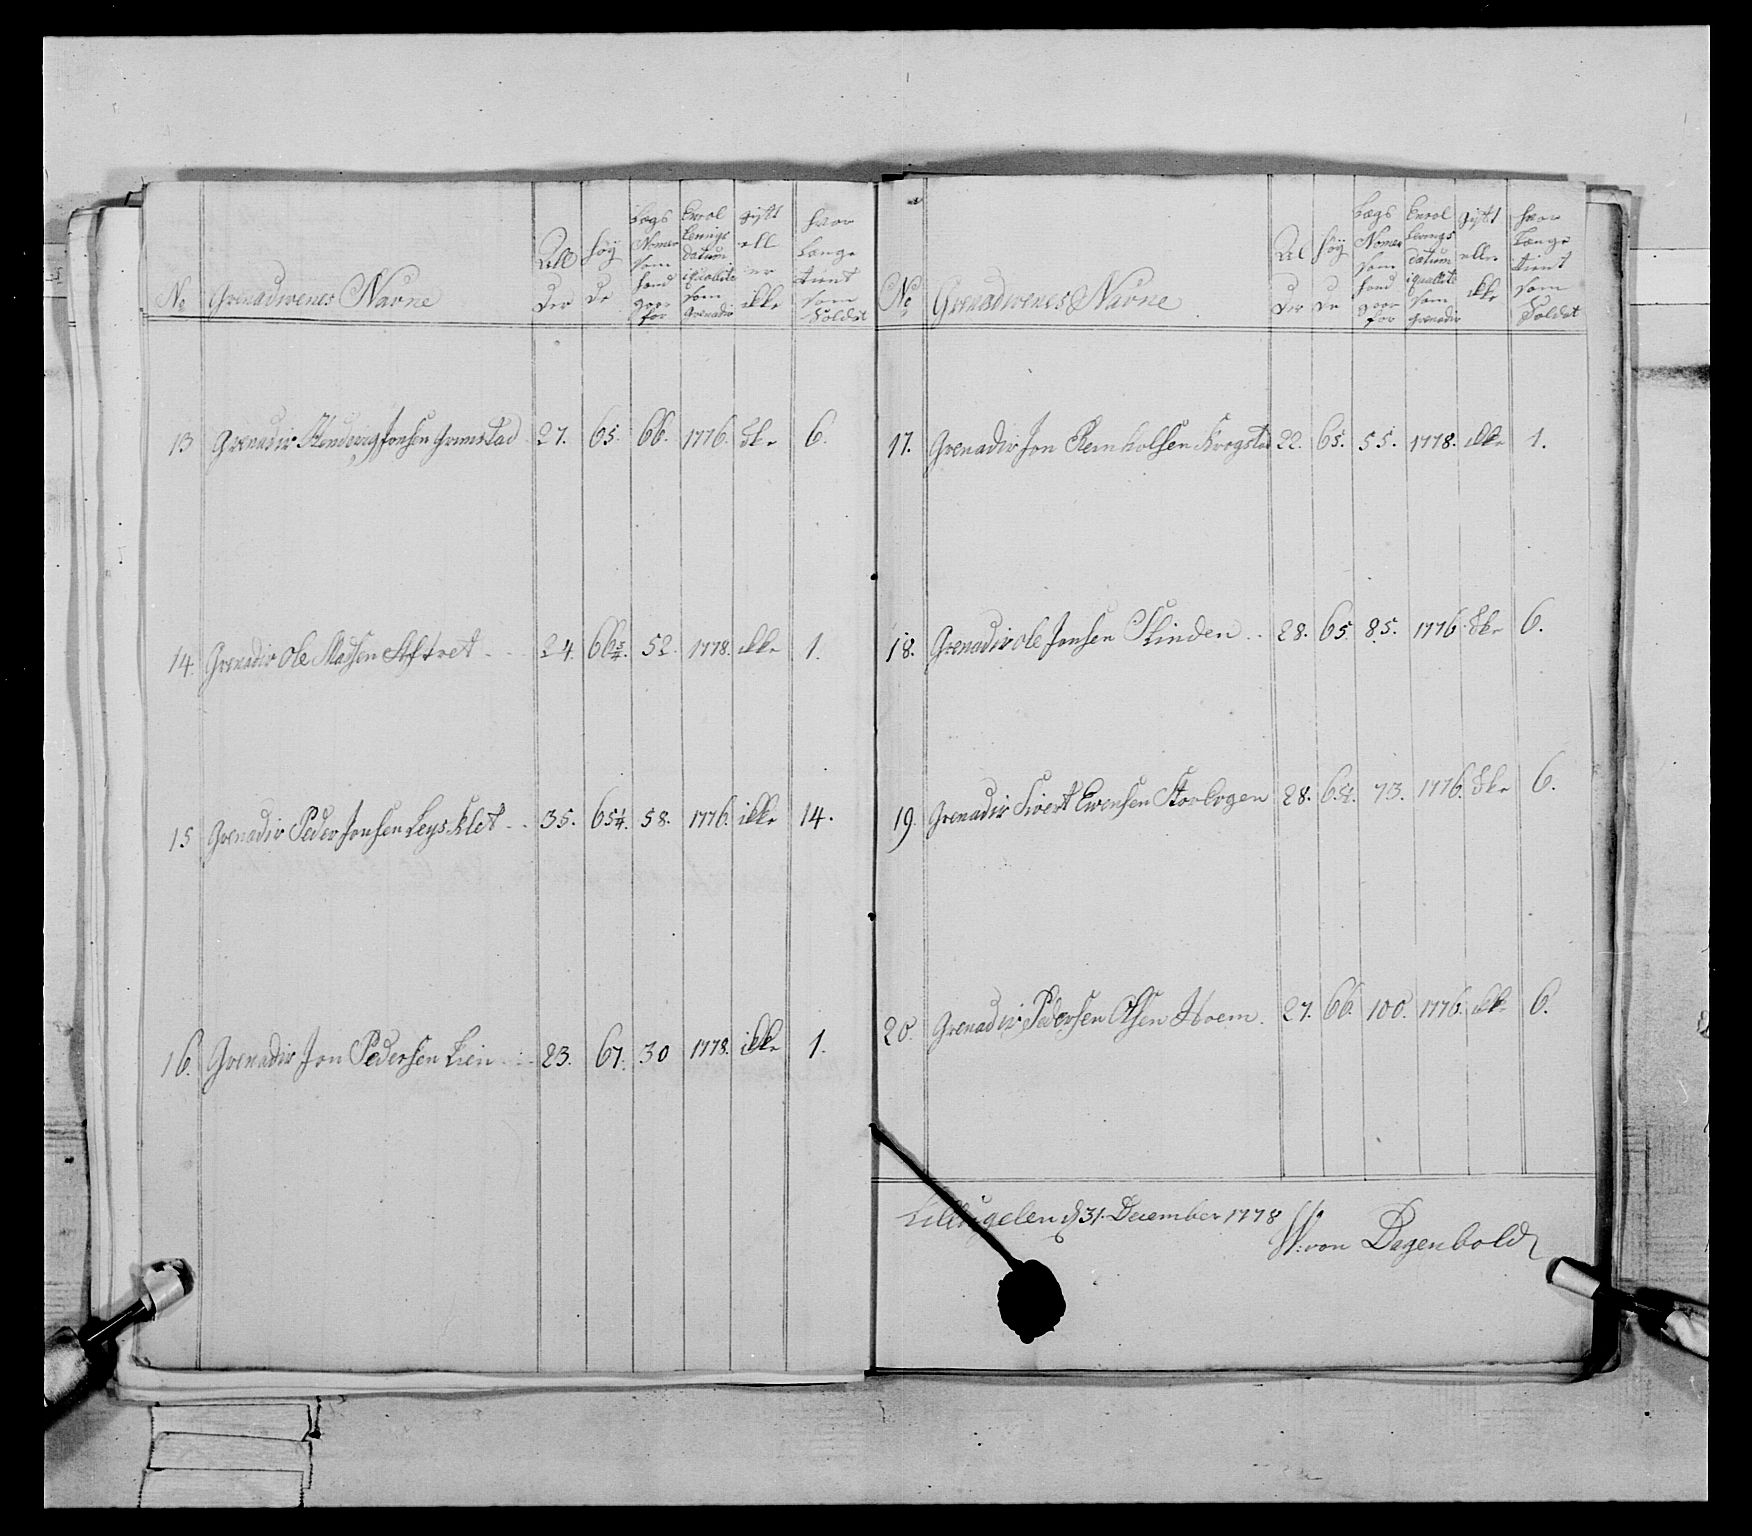 No Grenaderenes Navne Allder Høyde Lægs Nomer som hand goer for Enrolleerings datum i qvallite som Grenader gift eller ikke hvor Længe tient som Soldat
13 Grenadir Jonsen Grimstad 27. 65. 66. 1776. Ikke 6.
14. Grenadir Ole Madsen 24. 66 52. 1778. ikke 1.
15 Grenadir Peder Jonsen Leysklet 35. 65¼. 58. 1776. ikke 14.
16. Grenadir Jon Pedersen Lien 23. 67. 30 1778. ikke 1.
No Grenaderenes Navne Alder Høyde Lægs Nomer som hand goer for Enrolleerings datum i quallite som Grenadir gift eller ikke hvor Længe tient som Soldat
17. Grenadir Jon Krogstad 22. 65. 55. 1778. ikke 1.
18. Grenadir Ole Jonsen 28. 65. 85. 1776. Ikke 6.
19. Grenadir Sivert Evensen Storbogen 28. 73. 1776. Ikke 6.
20. Grenadir Pedersen Olsen Hoem. 27. 66. 100. 1776. ikke 6.
31. December 1778
von Degenbold